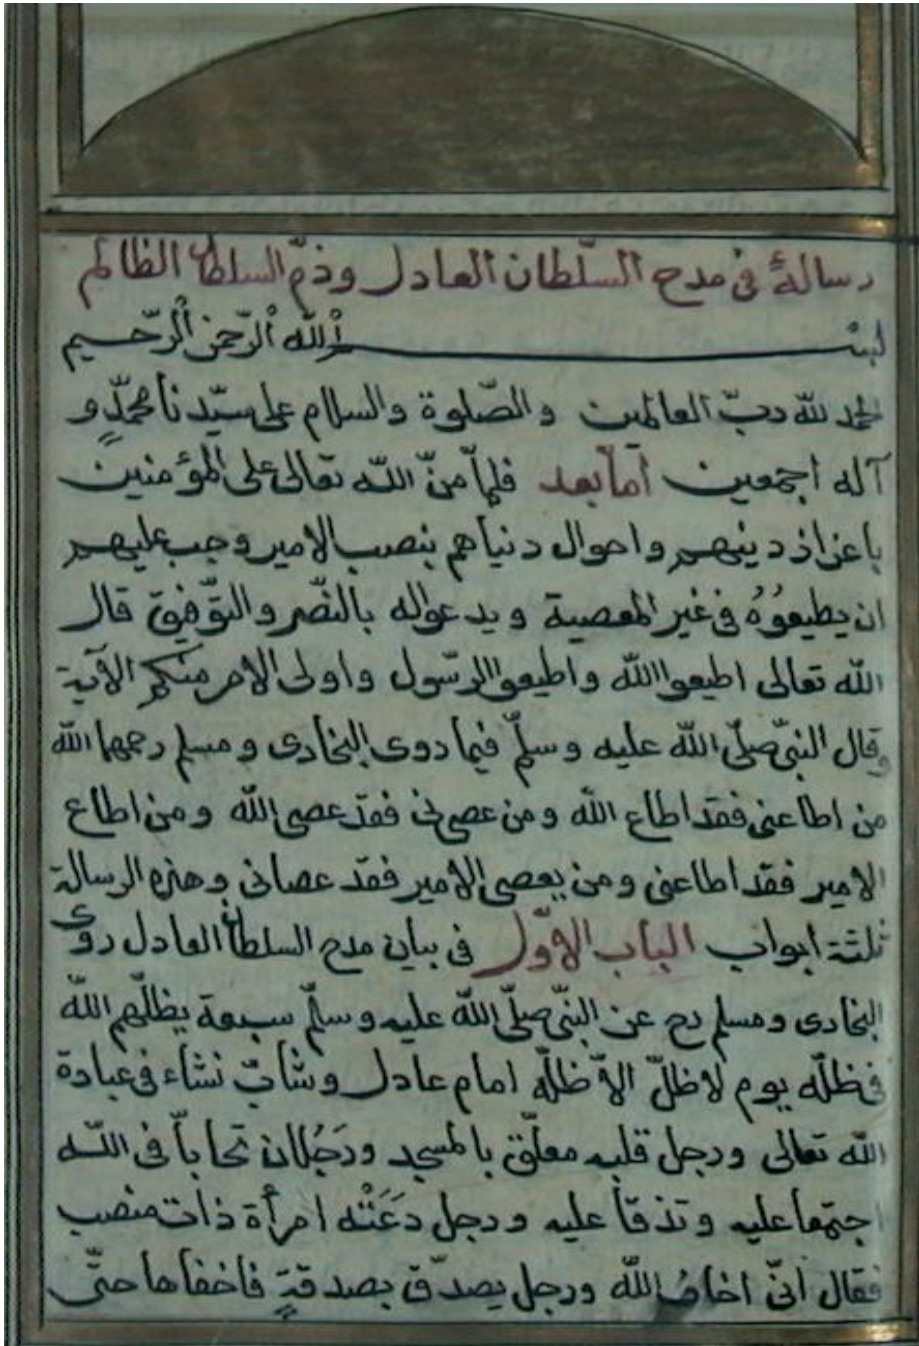 رسالةٌ فى مدح السّلطان العادل وذمّ السلطان الظالم
بسْم اللّٰه الرّحمن الرّحيم
الحمد للّه ربّ العالمين والصّلوة والسلام على سيّدنا محمّدٍ و
آله اجمعين امّا بعد فلمّا منّ اللّه تعالى على المؤمنين
باعزاز دينهم واحوال دنياهم بنصب الامير وجب عليهم
ان يطيعُوُهُ فى غير المعصية ويدعوا له بالنّصر والتوّفيق قال
اللّه تعالى اطيعوا اللّه واطيعوا الرّسول واولى الامر منكم الآية
وقال النبىّ صلّى اللّه عليه وسلّم فيما روى البخارى ومسلم رحمهما اللّه
من اطاعنى فقد اطاع اللّه ومن عصى‌نى فقد عصى اللّه ومن اطاع
الامير فقد اطاعنى ومن يعصى الامير فقد عصانى وهذه الرسالة
ثلثة ابواب الباب الاوّل فى بيان مدح السلطان العادل روى
البخارى ومسلم رح عن النبىّ صلّى اللّه عليه وسلّم سبعة يظلّهم اللّه
فى ظلّه يوم لا ظلّ الاّ ظلّه امام عادل وشابّ نشاء فى عبادة
اللّه تعالى ورجل قلبه معلّق بالمسجد ورَجُلان تحابّا فى اللّه
اجتمعا عليه وتفرقا عليه ورجل دعَتْه امرأة ذات منصب
فقال انّى اخافُ اللّه ورجل يصدّق بصدقةٍ فاخفاها حتّى